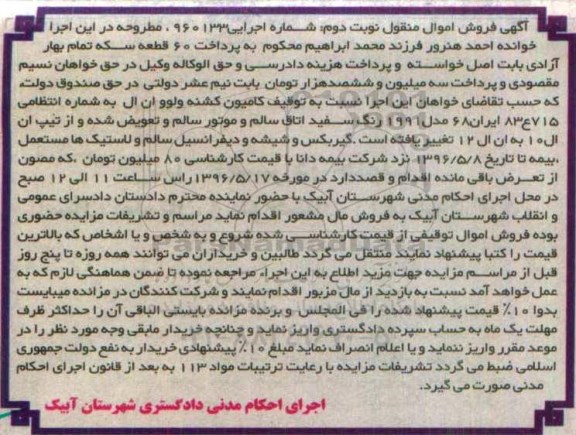 آگهی فروش اموال منقول نوبت دوم: شماره اجرایی۹۶۰۱۳۳ ، مطروحه در این اجرا
خوانده احمد هنرور فرزند محمد ابراهیم محکوم به پرداخت ۶۰ قطعه سکه تمام بهار
آزادی بابت اصل خواسته و پرداخت هزینه دادرسی و حق الوکاله وکیل در حق خواهان نسیم
مقصودی و پرداخت سه میلیون و ششصدهزار تومان بابت نیم عشر دولتی در حق صندوق دولت،
که حسب تقاضای خواهان این اجرا نسبت به توقیف کامیون کشنه ولوو ان ال به شماره انتظامی
۷۱۵ع۸۳ ایران۶۸ مدل۱۹۹۶ رنگ سفید اتاق سالم و موتور سالم و تعویض شده و از تیپ ان
ال۱۰ به ان ال ۱۲ تغییر یافته است .گیربکس و شیشه و دیفرانسیل سالم و لاستیک ها مستعمل
،بیمه تا تاریخ ۱۳۹۶/۵/۸ نزد شرکت بیمه دانا با قیمت کارشناسی ۸۰ میلیون تومان ،که مصون
از تعرض باقی مانده اقدام و قصددارد در مورخه ۱۳۹۶/۵/۱۷ راس ساعت ۱۱ الی ۱۲ صبح
در محل اجرای احکام مدنی شهرستان آبیک با حضور نماینده محترم دادستان دادسرای عمومی
و انقلاب شهرستان آبیک به فروش مال مشعور اقدام نماید مراسم و تشریفات مزایده حضوری
بوده فروش اموال توقیفی از قیمت کارشناسی شده شروع و به شخص و یا اشخاص که بالاترین
قیمت را کتبا پیشنهاد نمایند منتقل می گردد طالبین و خریداران می توانند همه روزه تا پنج روز
قبل از مراسم مزایده جهت مزید اطلاع به این اجراء مراجعه نموده تا ضمن هماهنگی لازم که به
عمل خواهد آمد نسبت به بازدید از مال مزبور اقدام نمایند و شرکت کنندگان در مزانده میبایست
بدوا ۱۰٪ قیمت پیشنهاد شده را فی المجلس و برنده مزانده بایستی الباقی آن را حداکثر ظرف
مهلت یک ماه به حساب سپرده دادگستری واریز نماید و چنانچه خریدار مابقی وجه مورد نظر را در
موعد مقرر واریز ننماید و یا اعلام انصراف نماید مبلغ ۱۰٪ پیشنهادی خریدار به نفع دولت جمهوری
اسلامی ضبط می گردد تشریفات مزایده با رعایت ترتیبات مواد ۱۱۳ به بعد از قانون اجرای احکام
مدنی صورت می گیرد.
اجرای احکام مدنی دادگستری شهرستان آبیک